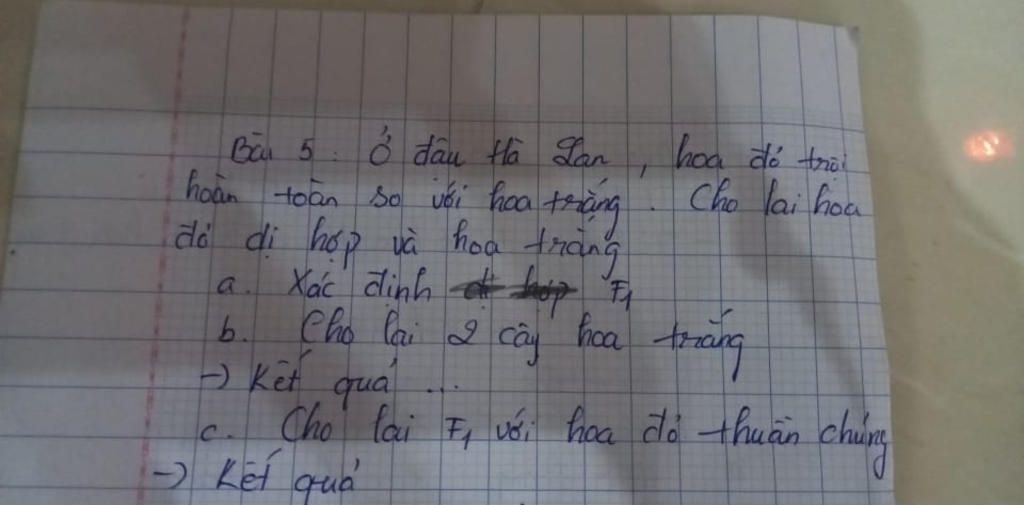 Bài 5 : Ở đậu Hà Lan , hoa đỏ trội
hoàn toàn so với hoa trắng . Cho lai hoa
đỏ dị hợp và hoa trắng
a. Xác định F1
b. Cho lai 2 cây hoa trắng
-> Kết quả ...
c. Cho lai F1 với hoa đỏ thuần chủng
-> Kết quả